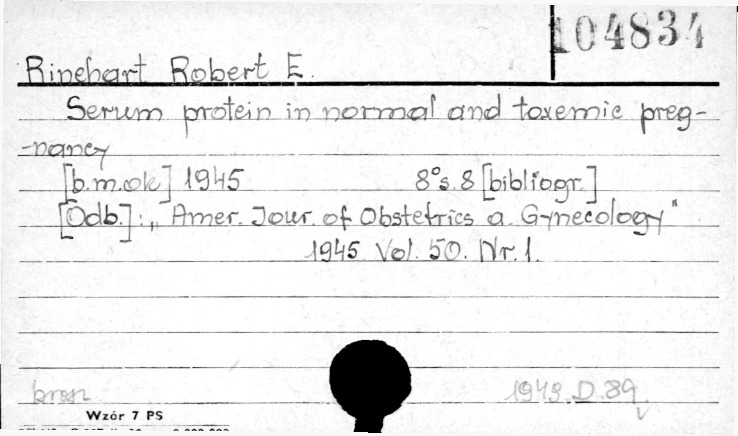 104834
Rinehart Robert E.
Serum protein in normal and toxemic preg-
-nancy
[b.m.ok] 1945 8°s.8 [bibliogr.]
[Odb.]: „Amer. Jour. of Obstetrics a. Gynecology"
1945 Vol. 50. Nr. 1.
brosz 1949.D.89
Wzór 7 PS